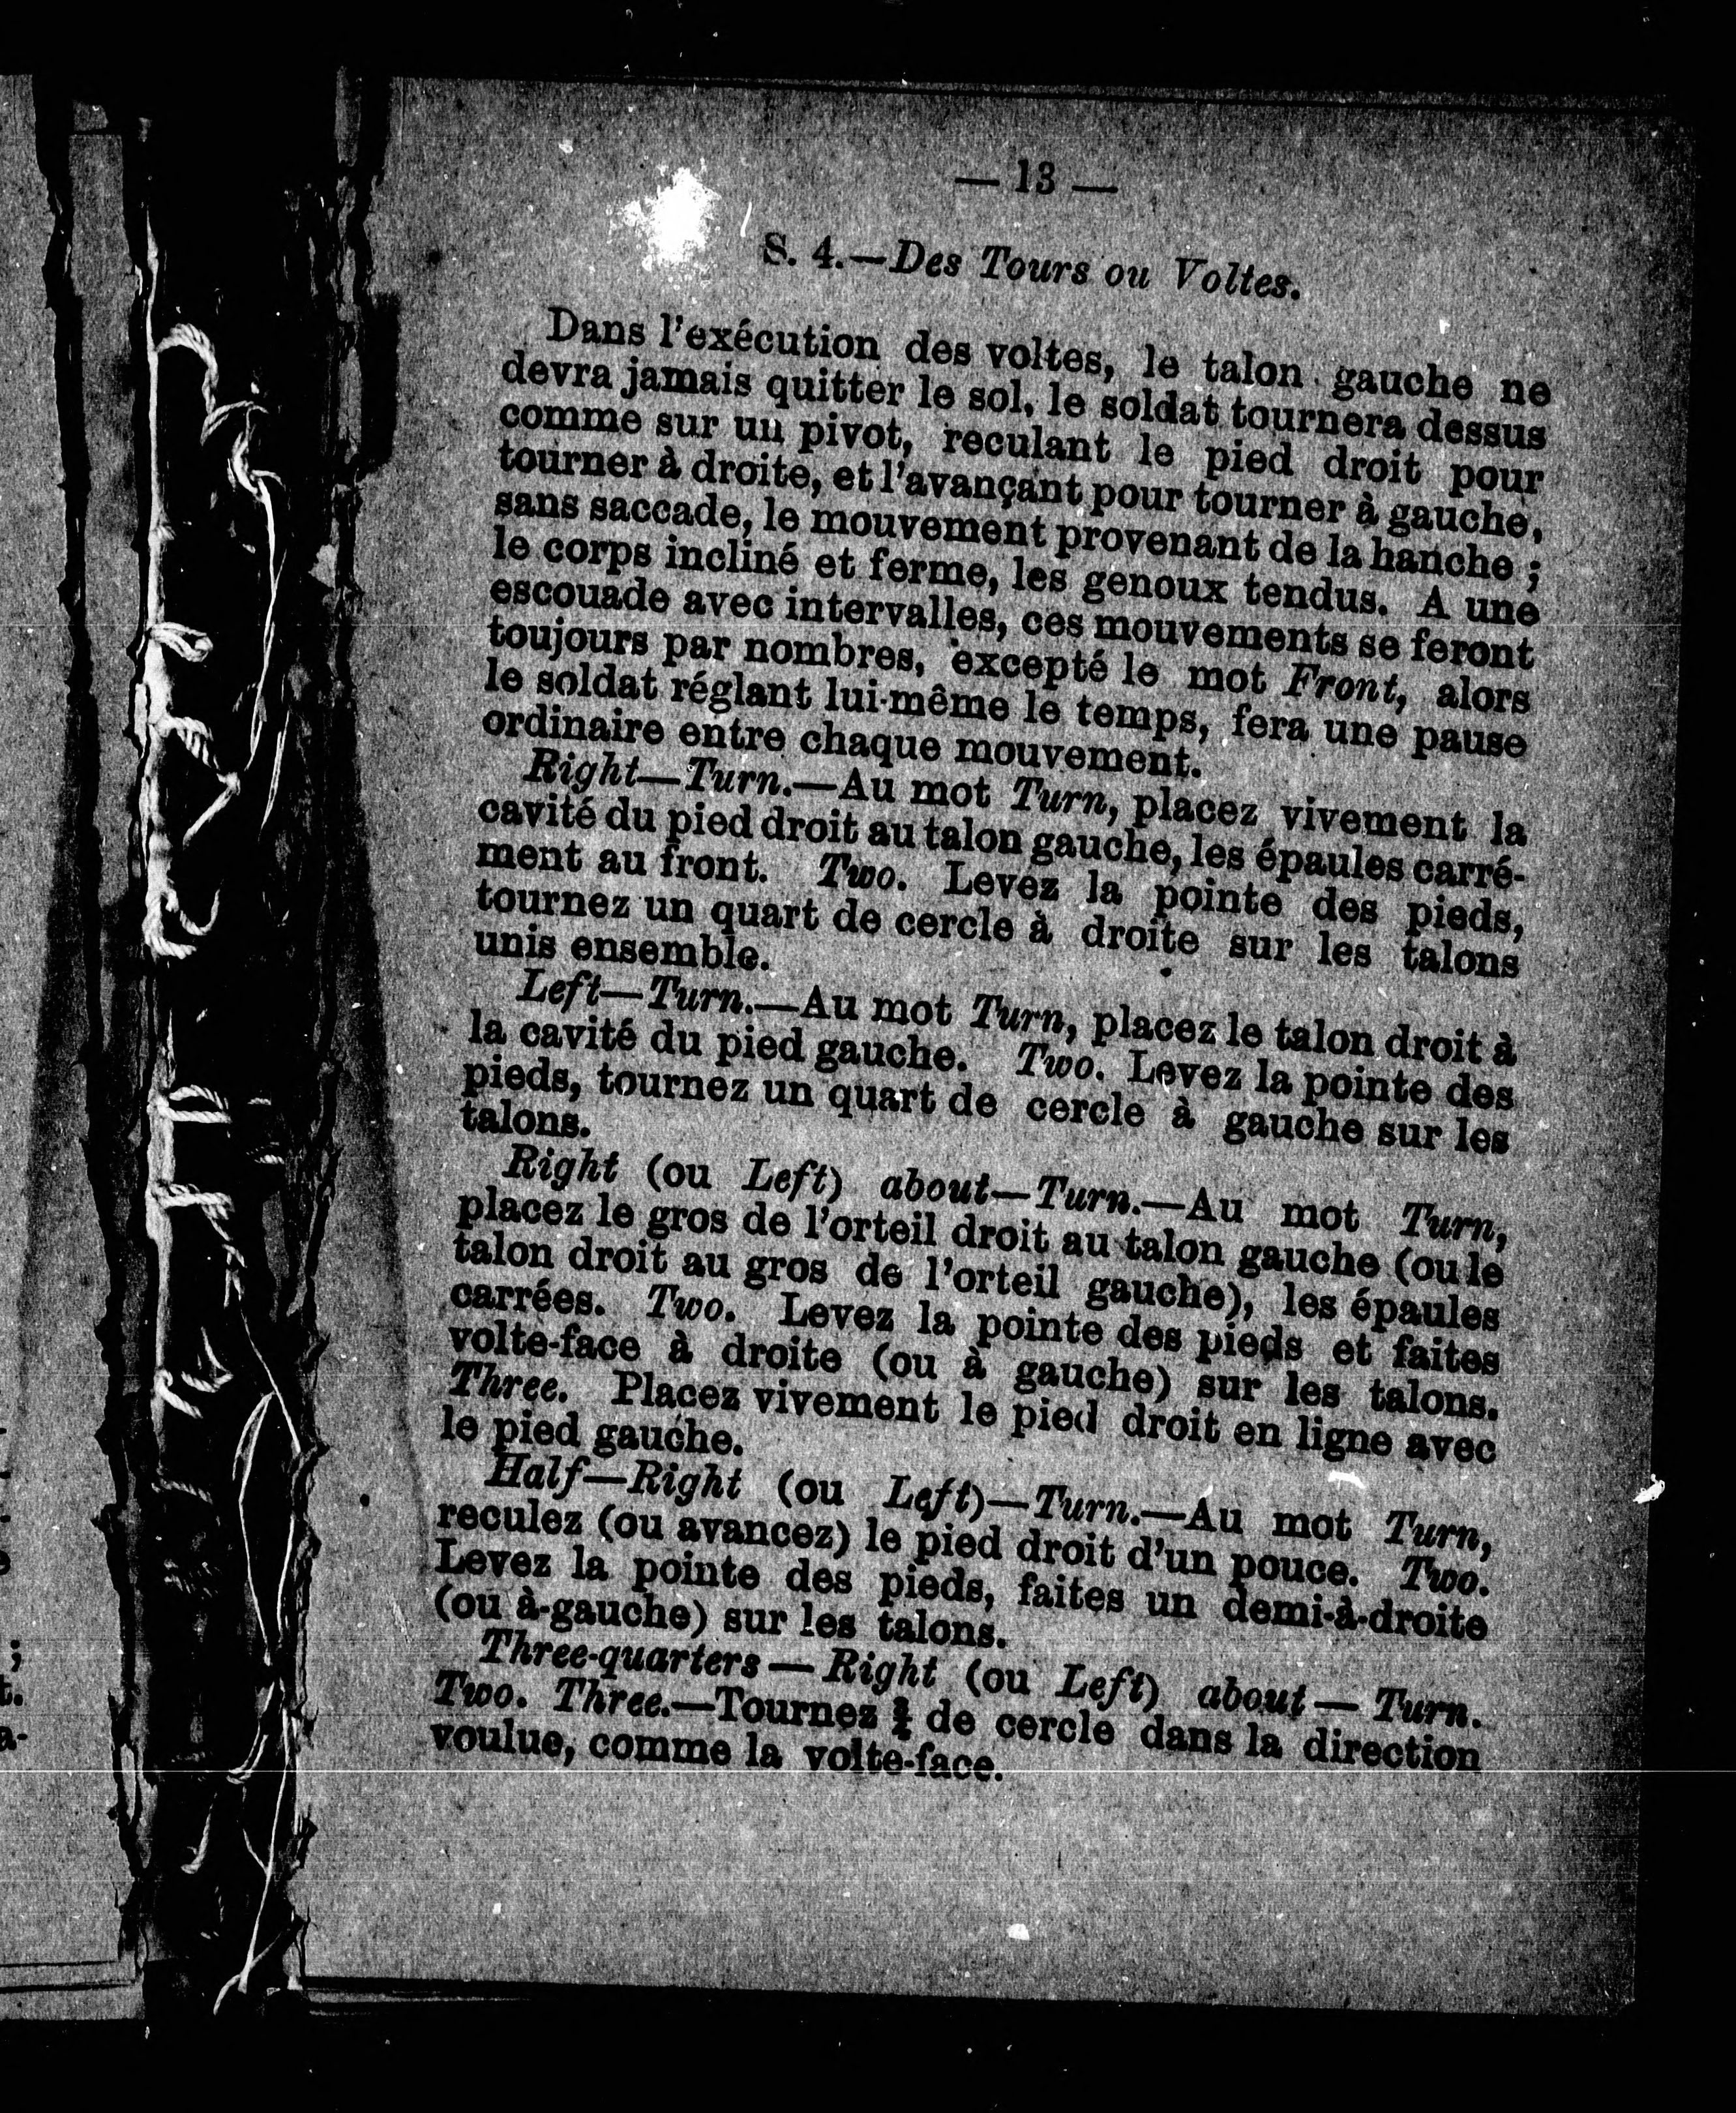 — 13 —
S. 4.—Des Tours ou Voltes.
Dans l'exécution des voltes, le talon gauche ne
devra jamais quitter le sol, le soldat tournera dessus
comme sur un pivot, reculant le pied droit pour
tourner à droite, et l'avançant pour tourner à gauche,
sans saccade, le mouvement provenant de la hanche ;
le corps incliné et ferme, les genoux tendus. A une
escouade avec intervalles, ces mouvements se feront
toujours par nombres, excepté le mot Front, alors
le soldat réglant lui-même le temps, fera une pause
ordinaire entre chaque mouvement.
Right—Turn.—Au mot Turn, placez vivement la
cavité du pied droit au talon gauche, les épaules carré-
ment au front. Two. Levez la pointe des pieds,
tournez un quart de cercle à droite sur les talons
unis ensemble.
Left—Turn.—Au mot Turn, placez le talon droit à
la cavité du pied gauche. Two. Levez la pointe des
pieds, tournez un quart de cercle à gauche sur les
talons.
Right (ou Left) about—Turn.—Au mot Turn,
placez le gros de l'orteil droit au talon gauche (ou le
talon droit au gros de l'orteil gauche), les épaules
carrées. Two. Levez la pointe des pieds et faites
volte-face à droite (ou à gauche) sur les talons.
Three. Placez vivement le pied droit en ligne avec
le pied gauche.
Half—Right (ou Left)—Turn.—Au mot Turn,
reculez (ou avancez) le pied droit d'un pouce. Two.
Levez la pointe des pieds, faites un demi-à-droite
(ou à-gauche) sur les talons.
Three-quarters — Right (ou Left) about — Turn.
Two. Three.—Tournez ¾ de cercle dans la direction
voulue, comme la volte-face.